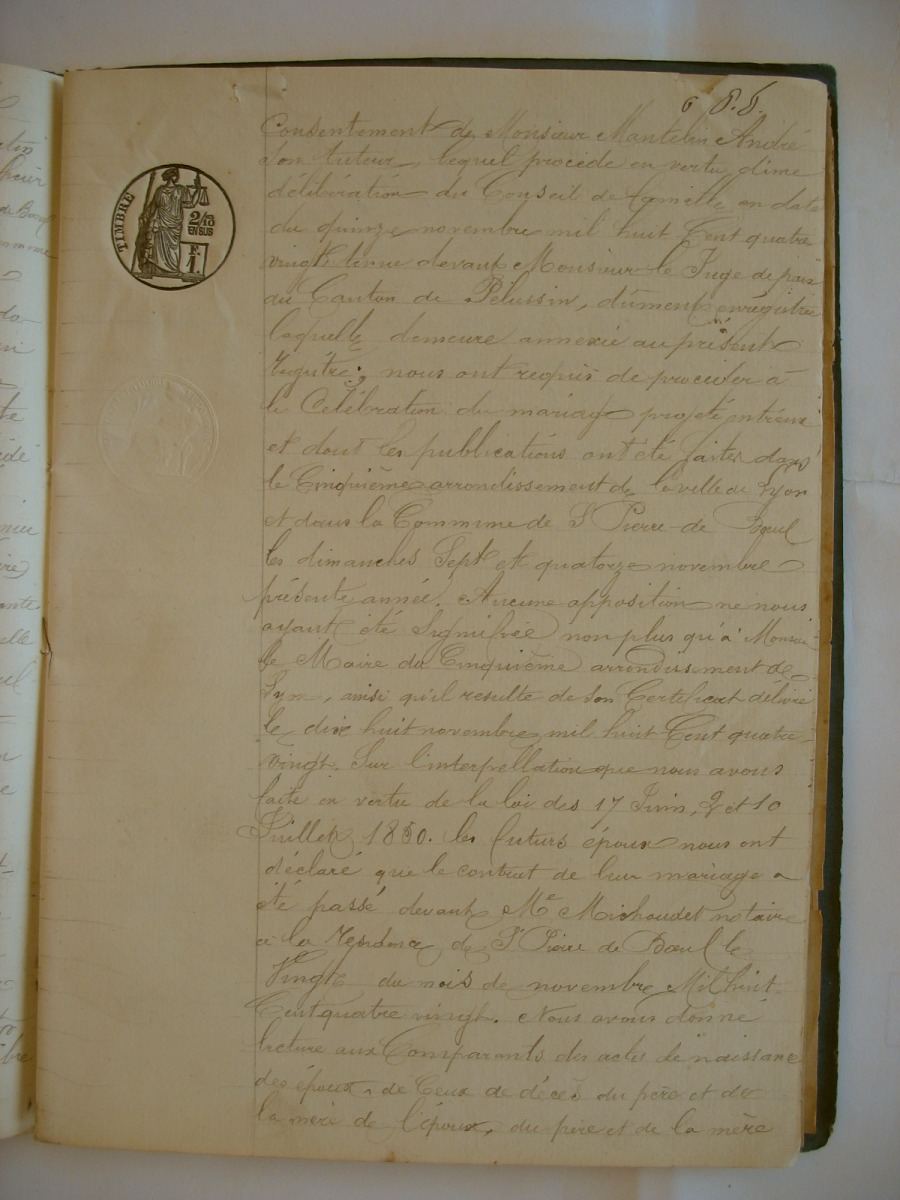 6
TIMBRE
2/10
EN SUS
F.
1.
Consentement de Monsieur Mantelin André
son tuteur, lequel procède en vertu d'une
délibération du Conseil de famille en date
du quinze novembre mil huit Cent quatre
vingt tenue devant Monsieur le Juge de paix
du Canton de Pélussin, dûment enrégistrée
laquelle demeure annexée au présent
régistre, nous ont requis de procéder à
la Célébration du mariage projeté entr'eux
et dont les publications ont été faites dans
le Cinquième arrondissement de la ville de Lyon
et dans la Commune de St Pierre de Bœuf
les dimanches Sept et quatorze novembre
présente année. Aucune opposition ne nous
ayant été Signifiée non plus qu'à Monsieur
le Maire du Cinquième arrondissement de
Lyon, ainsi qu'il resulte de son Certificat délivré
le dix huit novembre mil huit Cent quatre
vingt. Sur l'interpellation que nous avons
faite en vertu de la loi des 17 Juin, 2 et 10
Juillet 1850. les futurs époux nous ont
déclaré que le contrat de leur mariage a
été passé devant Me Michaudet notaire
à la résidence de St Pierre de Bœuf le
Vingt du mois de novembre Mil huit
Cent quatre vingt. Nous avons donné
lecture aux Comparants des actes de naissance
des époux, de Ceux de décès du père et de
la mère de l'époux, du père et de la mère